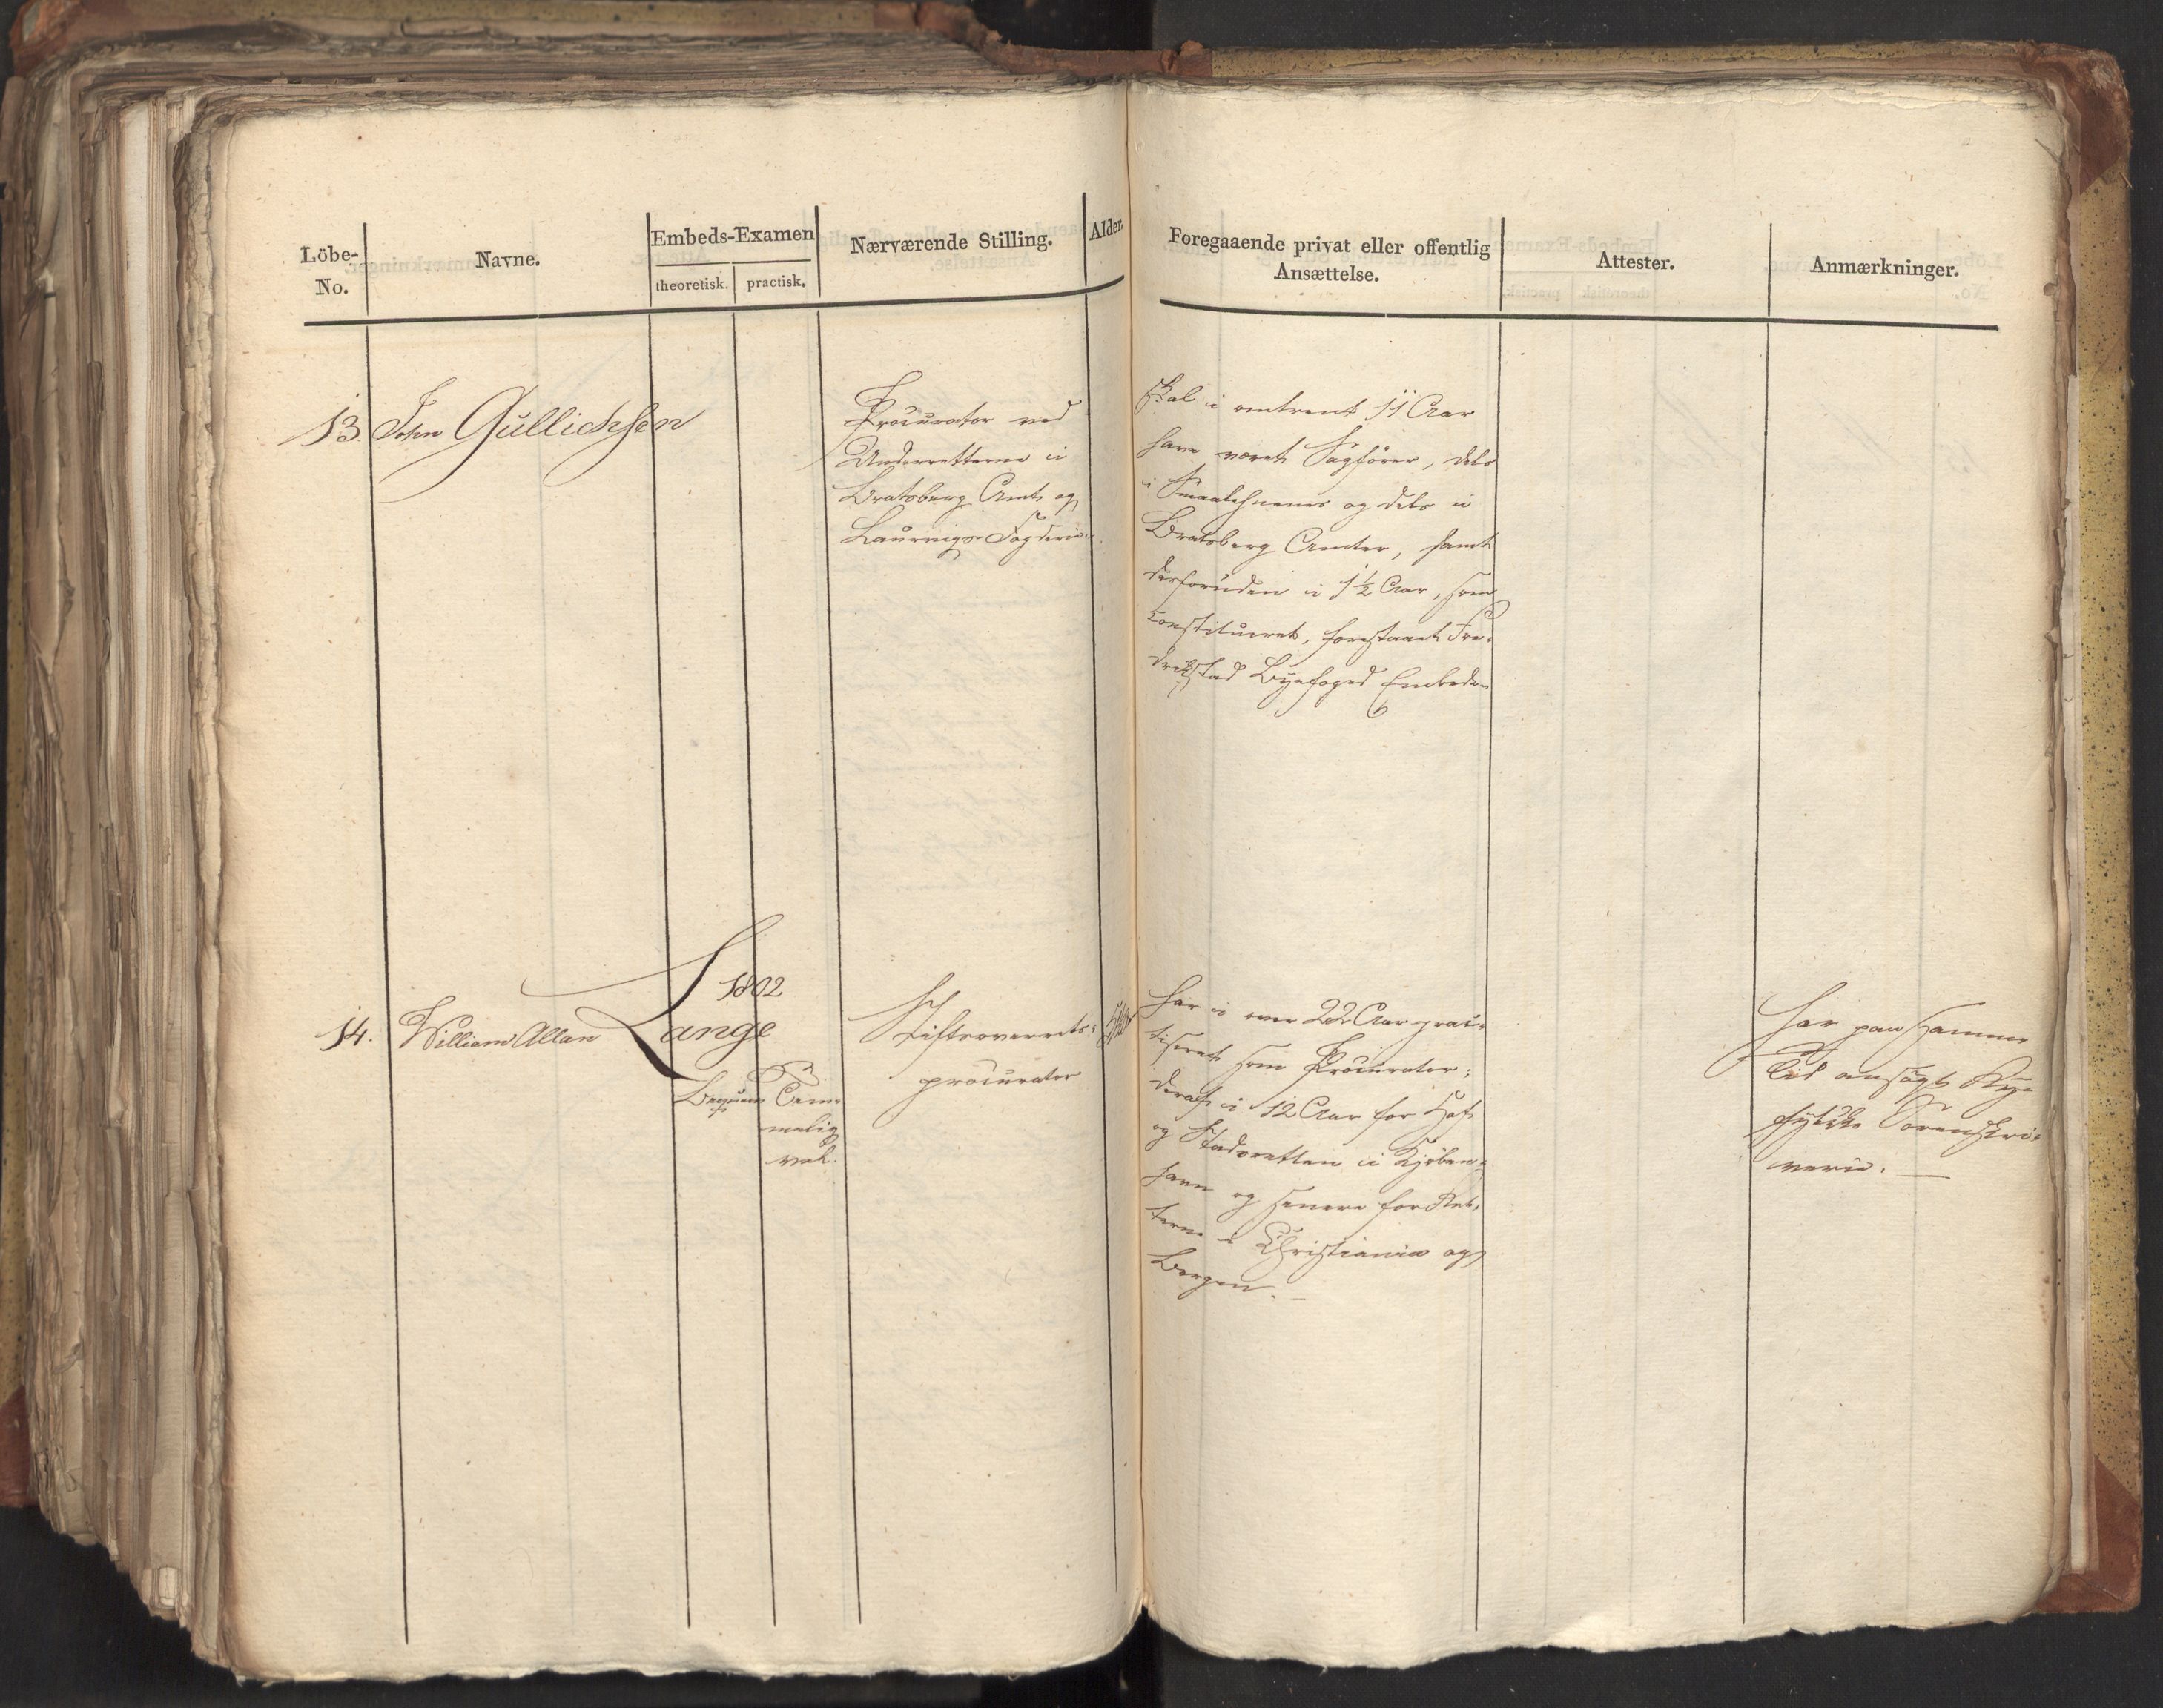 Löbe-
No.
Navne.
Embeds-Examen
theoretisk. practisk.
Nærværende Stilling.
Alder.
Foregaaende privat eller offentlig
Ansættelse.
Attester.
Anmærkninger.
13. John Gullichsen
Procurator ved
Underretterne i
Bratsberg Amt og
Laurvigs Fogderie.
skal i omtrent 11 Aar
have været Sagfører, dels
i Smaalehnenes og dels i
Bratsberg Amter, samt
desforuden i 1½ Aar, som
constitueret, forestaaet Fre-
drikstad Byefoged Embede
14. William Allan Lange
1802
Beqvem
maalig
vel.
Stiftsoverrets-
procurator
har i over 22 Aar prac-
tiseret som Procurator;
deraf i 12 Aar for Hof
og Stadsretten i Kjøben-
havn og senere for Ret-
terne i Christiania og
Bergen.
har paa samme
Tid ansøgt Rye-
fylke Sorenskri-
verie.